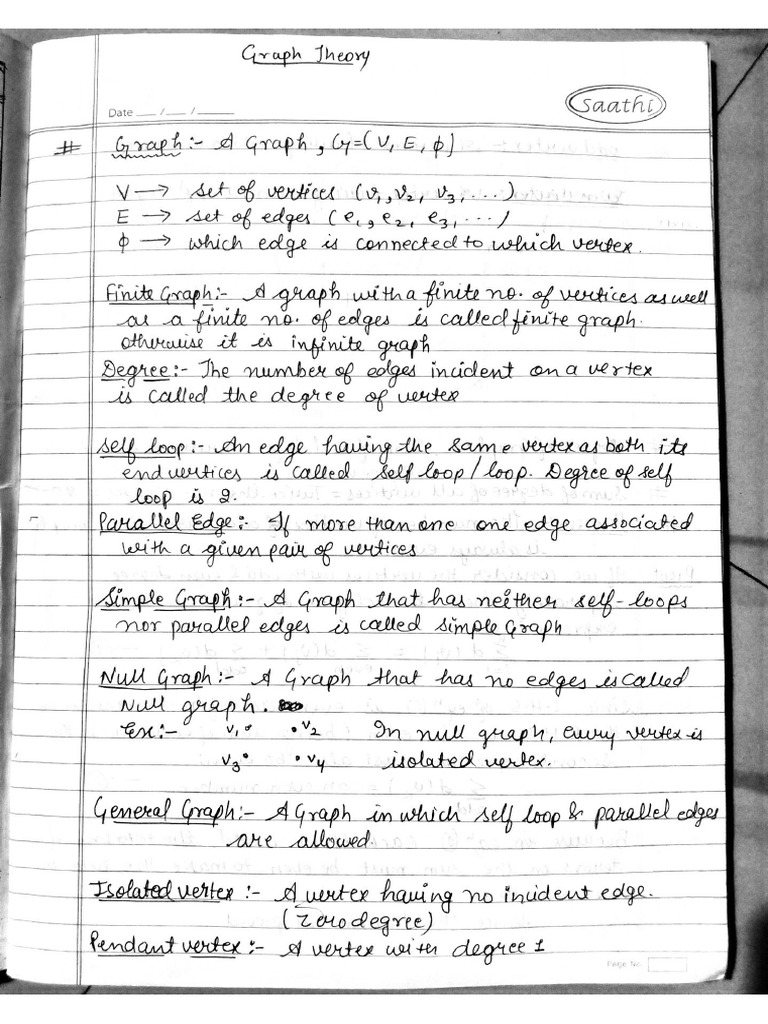 Graph Theory
Saathi
Date __/__/____
# Graph:- A Graph, G=(V, E, ϕ)
V → set of vertices (v1, v2, v3, ....)
E → set of edges (e1, e2, e3, ....)
ϕ → which edge is connected to which vertex.
Finite Graph:- A graph with a finite no. of vertices as well
as a finite no. of edges is called finite graph.
otherwise it is infinite graph
Degree:- The number of edges incident on a vertex
is called the degree of vertex
Self loop:- An edge having the same vertex as both its
end vertices is called self loop/loop. Degree of self
loop is 2.
Parallel Edge:- If more than one one edge associated
with a given pair of vertices
Simple Graph:- A Graph that has neither self-loops
nor parallel edges is called simple Graph
Null Graph:- A Graph that has no edges is called
Null graph.
Ex:- v1• •v2 In null graph, every vertex is
v3• •v4 isolated vertex.
General Graph:- A Graph in which self loop & parallel edges
are allowed
Isolated vertex:- A vertex having no incident edge.
(Zero degree)
Pendant vertex:- A vertex with degree 1
Page No.